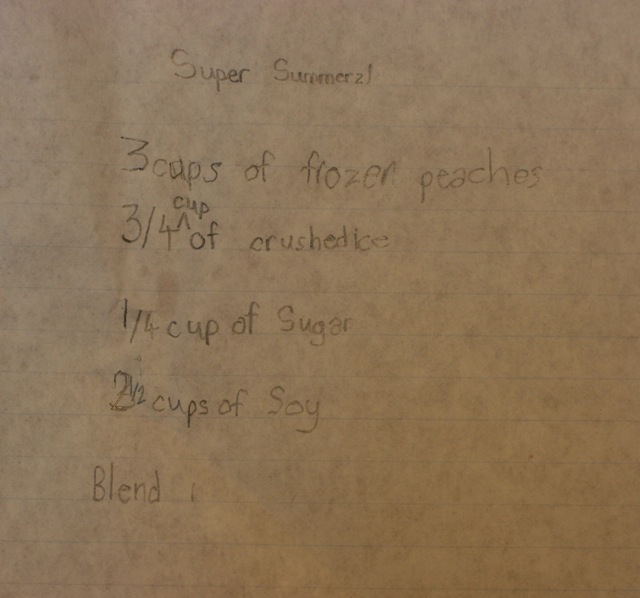 Super Summerz!
3 cups of frozen peaches
3/4 cup of crushed ice
1/4 cup of Sugar
2 1/2 cups of Soy
Blend